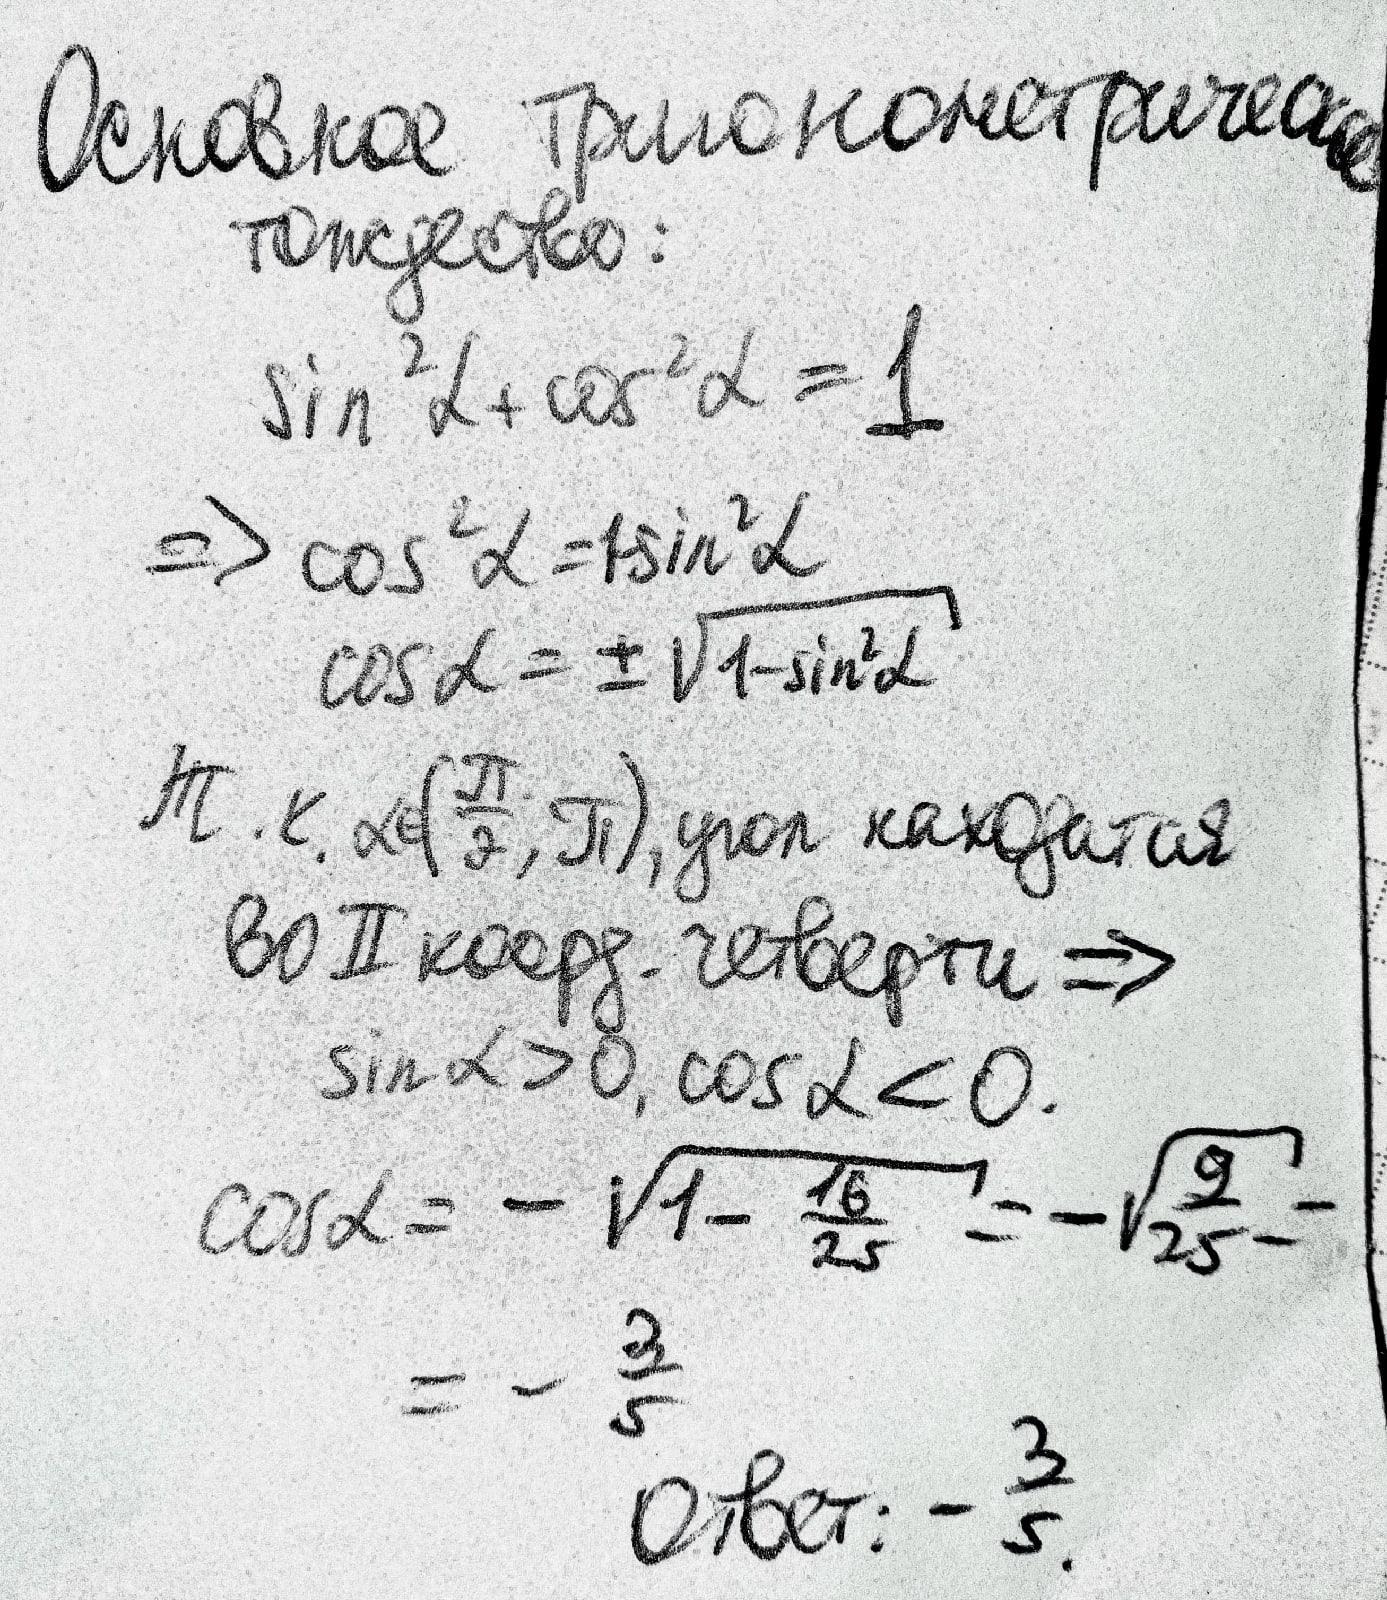 Основное тригонометрическое
тождество:
sin²α + cos²α = 1
=> cos²α = 1-sin²α
cosα = ± √(1-sin²α)
Т.к. α∈(π/2; π), угол находится
во II коорд. четверти =>
sinα > 0, cosα < 0.
cosα = - √(1 - 16/25) = -√(9/25) =
= - 3/5
Ответ: - 3/5.